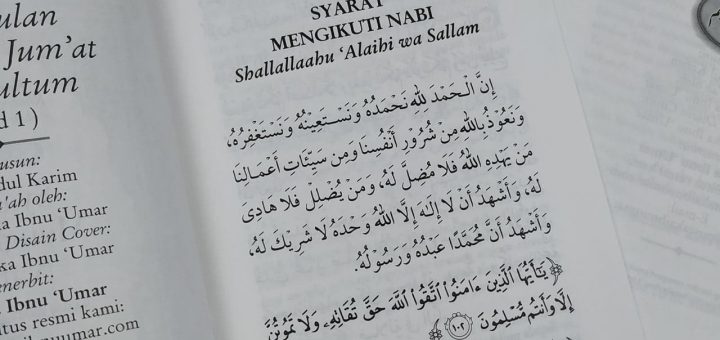 ulan
Jum'at
ultum
d 1)
usun:
dul Karim
a'ah oleh:
a Ibnu 'Umar
Disain Cover:
ka Ibnu 'Umar
enerbit:
Ibnu 'Umar
itus resmi kami:
umar.com
SYARAT
MENGIKUTI NABI
Shallallaahu 'Alaihi wa Sallam
إِنَّ الْحَمْدَ لِلّٰهِ نَحْمَدُهُ وَنَسْتَعِيْنُهُ وَنَسْتَغْفِرُهُ،
وَنَعُوْذُ بِاللّٰهِ مِنْ شُرُوْرِ أَنْفُسِنَا وَمِنْ سَيِّئَاتِ أَعْمَالِنَا
مَنْ يَهْدِهِ اللّٰهُ فَلَا مُضِلَّ لَهُ، وَمَنْ يُضْلِلْ فَلَا هَادِيَ
لَهُ، وَأَشْهَدُ أَنْ لَا إِلٰهَ إِلَّا اللّٰهُ وَحْدَهُ لَا شَرِيْكَ لَهُ،
وَأَشْهَدُ أَنَّ مُحَمَّدًا عَبْدُهُ وَرَسُوْلُهُ.
﴿ يَـٰٓأَيُّهَا ٱلَّذِينَ ءَامَنُوا۟ ٱتَّقُوا۟ ٱللَّهَ حَقَّ تُقَاتِهِۦ وَلَا تَمُوتُنَّ
إِلَّا وَأَنتُم مُّسْلِمُونَ ١٠٢ ﴾